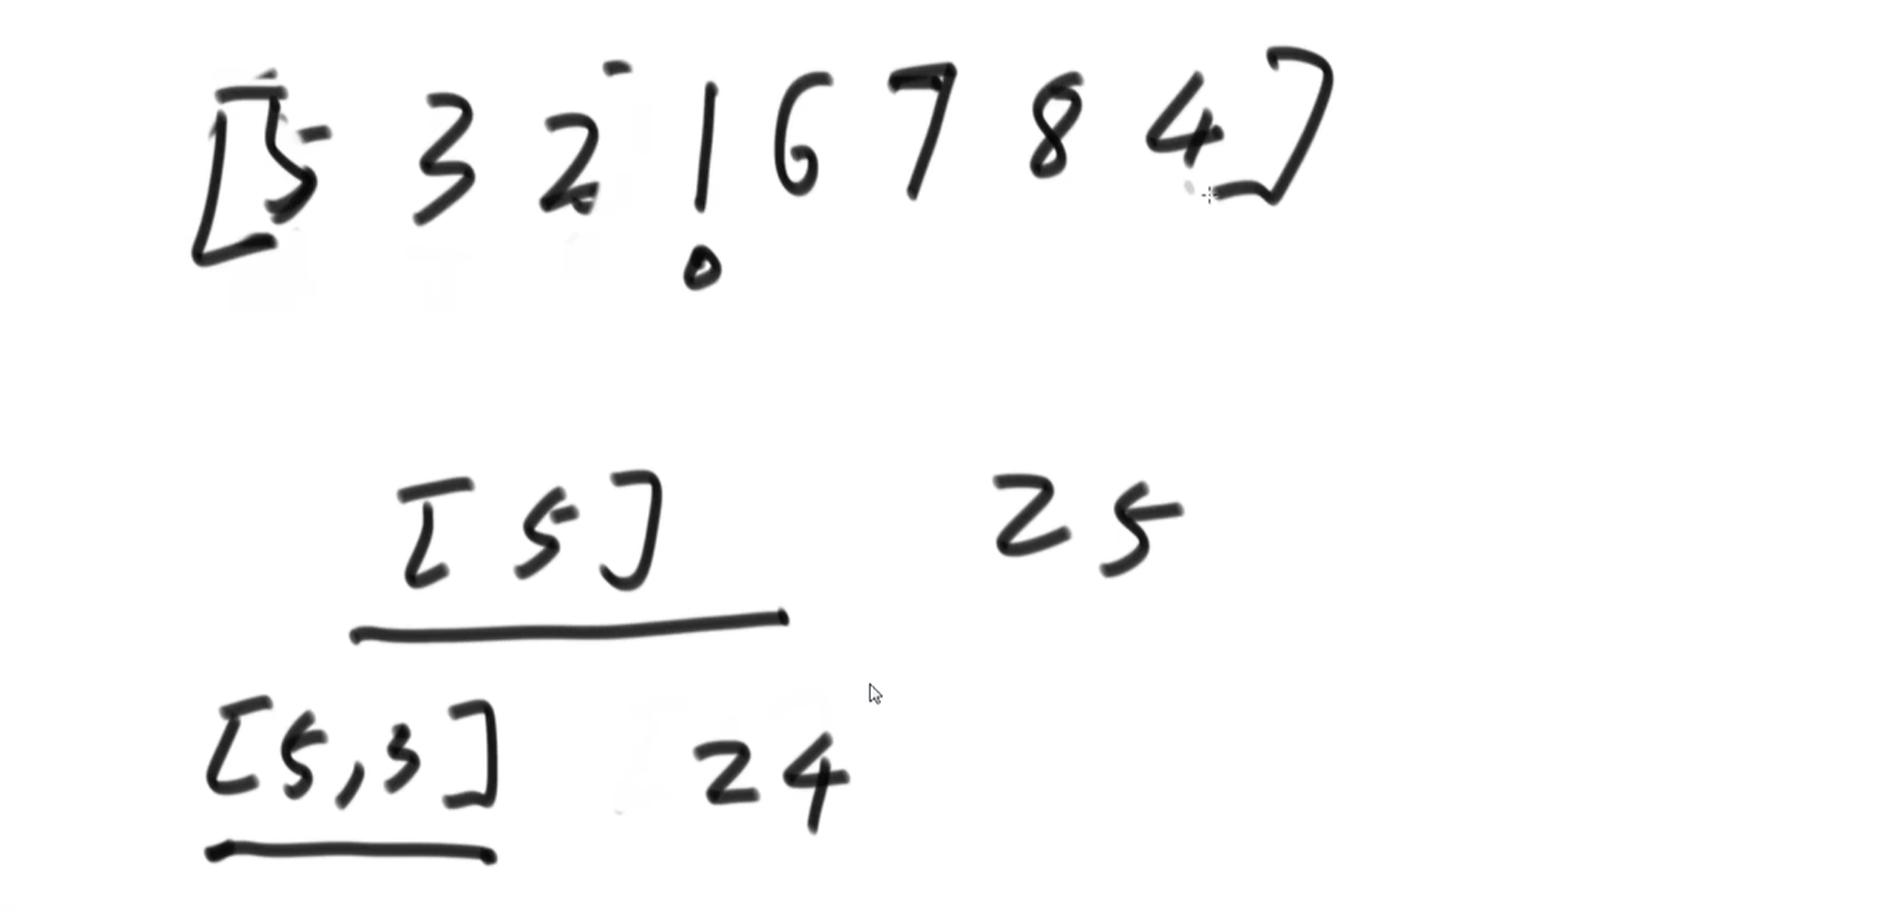 [5 3 2 1 6 7 8 4]
[5] 25
[5,3] 24